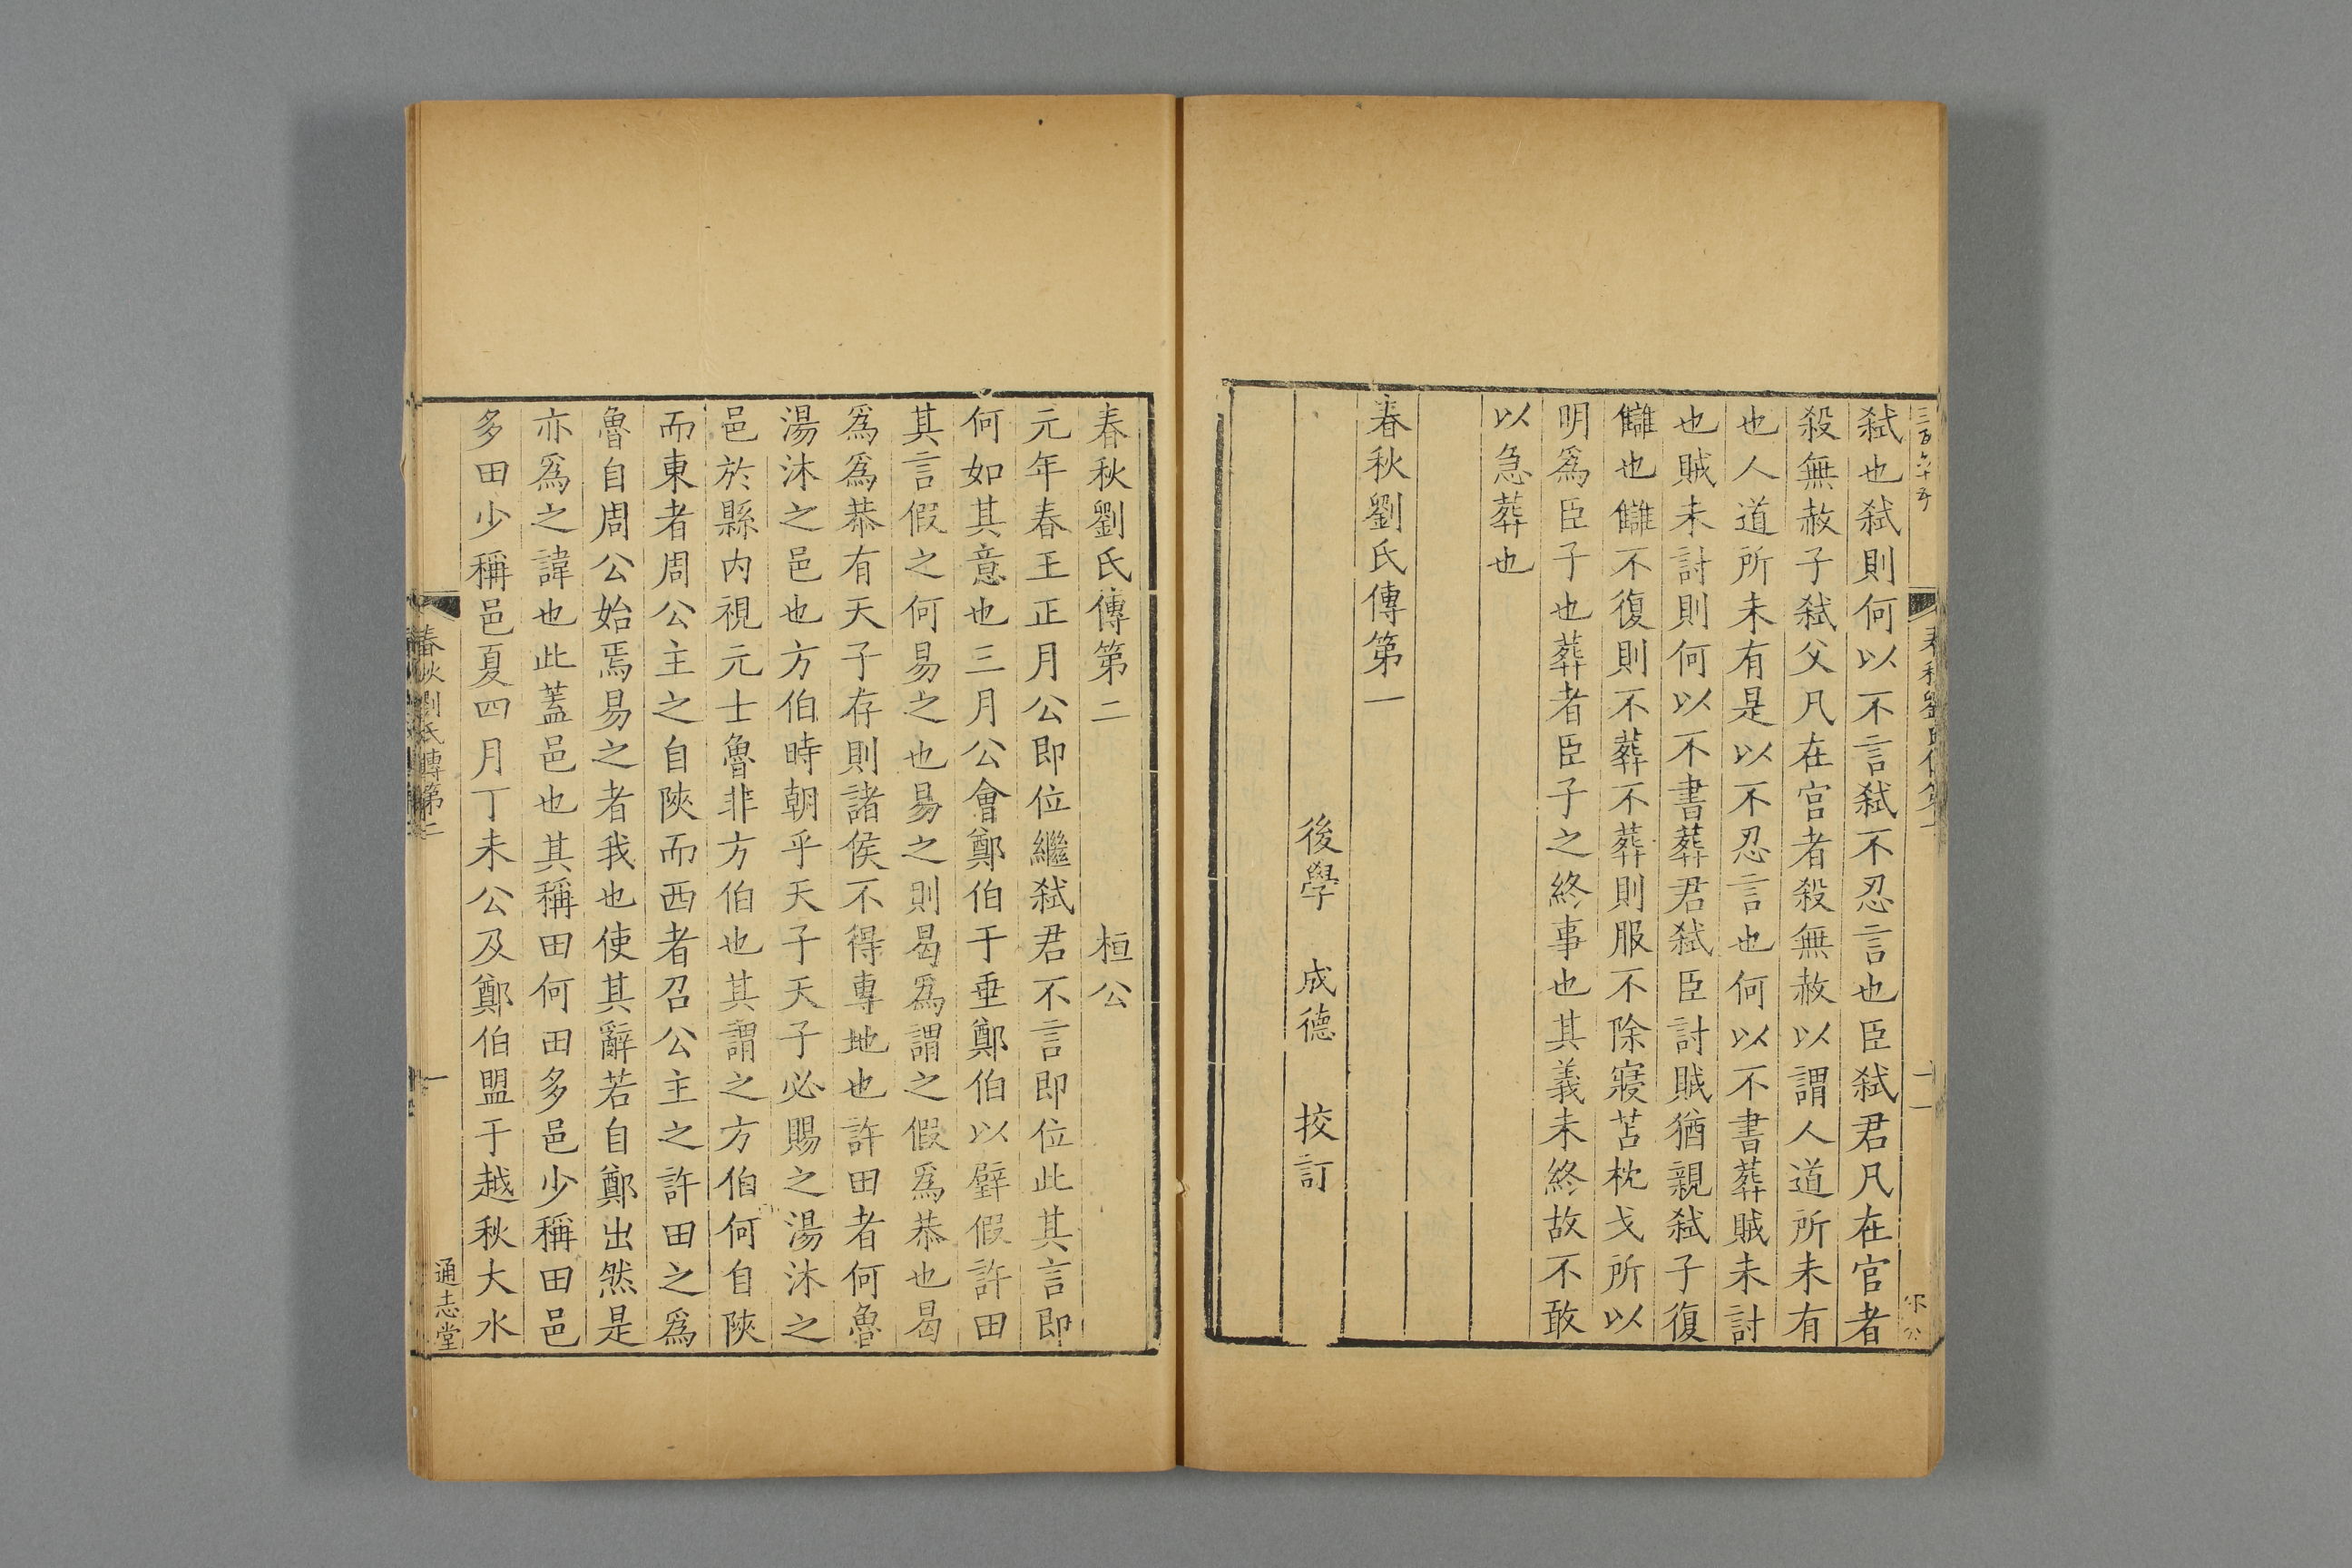 三百六十五
弑也弑則何以不言弑不忍言也臣弑君凡在官者
殺無赦子弑父凡在宮者殺無赦以謂人道所未有
也人道所未有是以不忍言也何以不書葬賊未討
也賊未討則何以不書葬君弑臣討賊猶親弑子復
讎也讎不復則不葬不葬則服不除寢苫枕戈所以
明爲臣子也葬者臣子之終事也其義未終故不敢
以急葬也
春秋劉氏傳第一
後學 成德 挍訂
春秋劉氏傳第二 桓公
元年春王正月公即位繼弑君不言即位此其言即
何如其意也三月公會鄭伯于垂鄭伯以璧假許田
其言假之何易之也易之則曷爲謂之假爲恭也曷
爲爲恭有天子存則諸侯不得專地也許田者何魯
湯沐之邑也方伯時朝乎天子天子必賜之湯沐之
邑於縣内視元士魯非方伯也其謂之方伯何自陜
而東者周公主之自陜而西者召公主之許田之爲
魯自周公始焉易之者我也使其辭若自鄭出然是
亦爲之諱也此蓋邑也其稱田何田多邑少稱田邑
多田少稱邑夏四月丁未公及鄭伯盟于越秋大水
春秋劉氏傳第二
一
通志堂